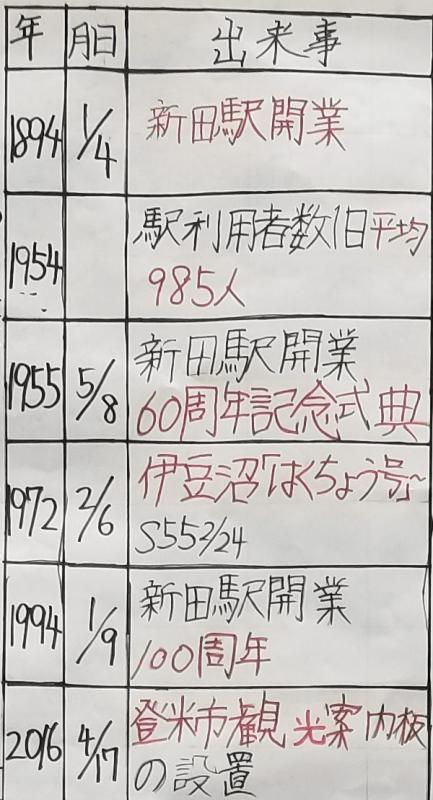 年 月日 出来事
1894 1/4 新田駅開業
1954 駅利用者数1日平均
985人
1955 5/8 新田駅開業
60周年記念式典
1972 2/6 伊豆沼「はくちょう号」~
S55 2/24
1994 1/9 新田駅開業
100周年
2016 4/17 登米市観光案内板
の設置